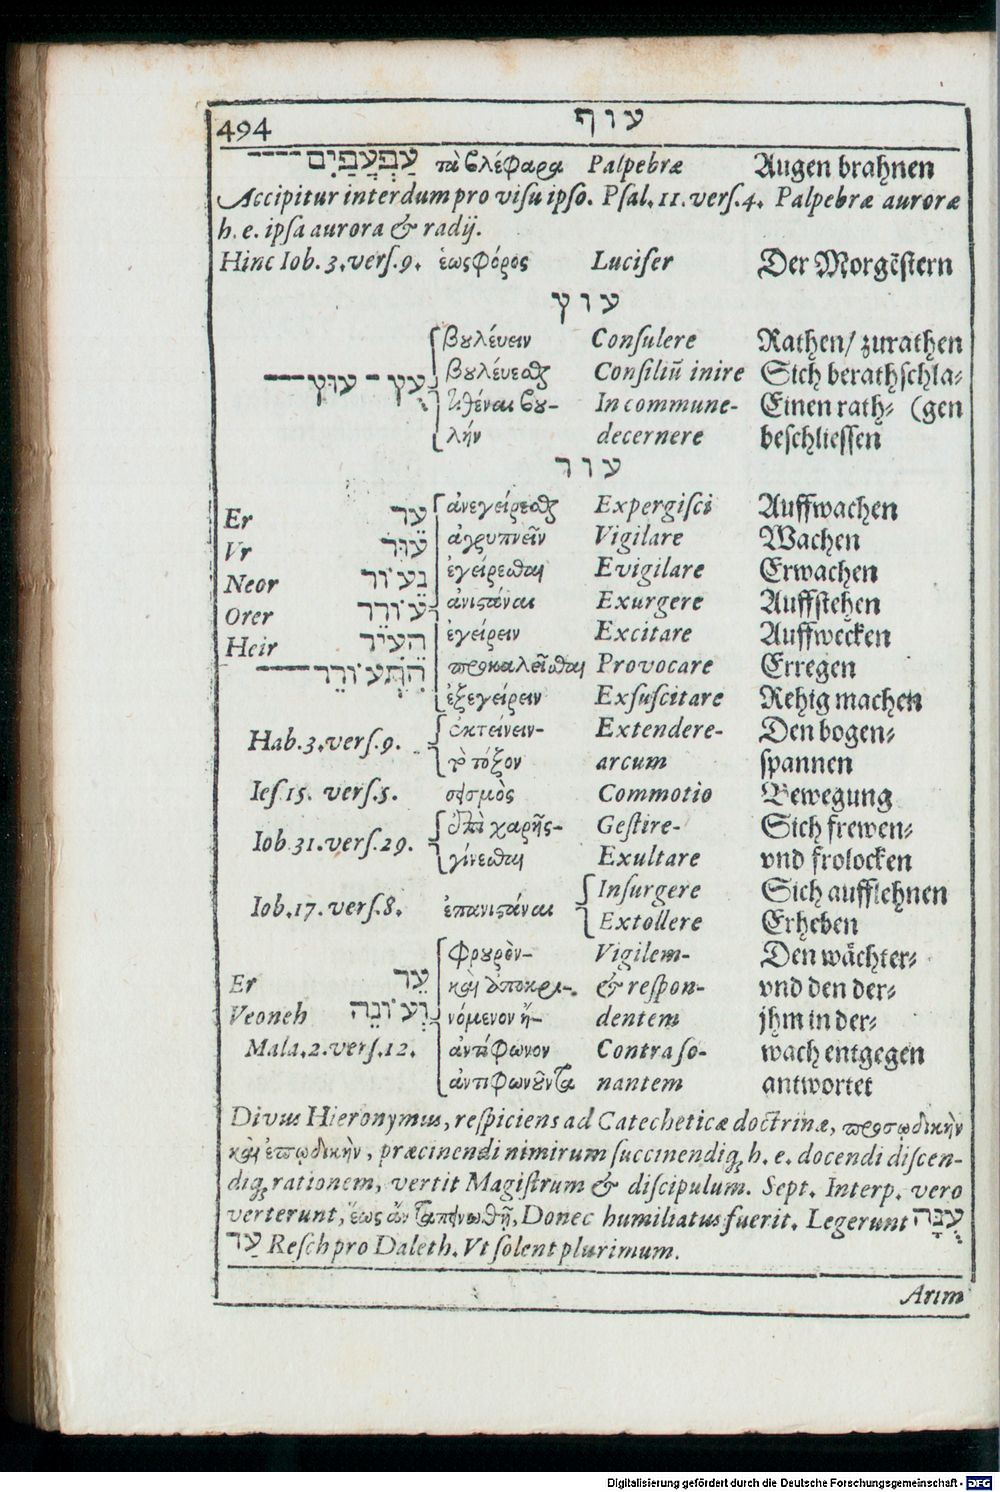 494 עוף
עַפְעַפַּיִם τὰ βλέφαρα Palpebræ Augen brahnen
Accipitur interdum pro viſu ipſo. Pſal. 11. verſ. 4. Palpebræ auroræ
h. e. ipſa aurora & radij.
Hinc Iob. 3. verſ. 9. ἑωςφόρος Lucifer Der Morgẽſtern
עוץ
βουλέυειν Conſulere Rathen/ zurathen
עֻץ - עוּץ βουλέυεσθαι Conſiliũ inire Sich berathſchla-
τιθέναι βου- In commune- Einen rath- (gen
λήν decernere beſchlieſſen
עור
Er עֵר ἀνεγείρεσθαι Expergiſci Auffwachen
Vr עוּר ἀγρυπνεῖν Vigilare Wachen
Neor נֵעוֹר ἐγείρεσθαι Evigilare Erwachen
Orer עוֹרֵר ἀνιστάναι Exurgere Auffſtehen
Heir הֵעִיר ἐγείρειν Excitare Auffwecken
הִתְעוֹרֵר προκαλεῖσθαι Provocare Erregen
ἐξεγείρειν Exſuſcitare Rehig machen
Hab. 3. verſ. 9. ἐκτείνειν- Extendere- Den bogen-
τὸ τόξον arcum ſpannen
Ieſ. 15. verſ. 5. σεισμὸς Commotio Bewegung
Iob. 31. verſ. 29. ἐπὶ χαρῆς- Geſtire- Sich frewen-
γίνεσθαι Exultare vnd frolocken
Iob. 17. verſ. 8. ἐπανιστάναι Inſurgere Sich aufflehnen
Extollere Erheben
φρουρὸν- Vigilem- Den wächter-
Er עֵר καὶ ἀποκρι- & reſpon- vnd den der-
Veoneh וְעוֹנֶה νόμενον ἤ- dentem jhm in der-
Mala. 2. verſ. 12. ἀντίφωνον Contra ſo- wach entgegen
ἀντιφωνοῦντα nantem antwortet
Divus Hieronymus, reſpiciens ad Catecheticæ doctrinæ, προσῳδικὴν
καὶ ἐπῳδικὴν, præcinendi nimirum ſuccinendiq; h. e. docendi diſcen-
diq; rationem, vertit Magiſtrum & diſcipulum. Sept. Interp. vero
verterunt, ἕως ἂν ταπεινωθῇ, Donec humiliatus fuerit. Legerunt עֻנָּה
עַד Reſch pro Daleth. Vt ſolent plurimum.
Arim
Digitalisierung gefördert durch die Deutsche Forschungsgemeinschaft - DFG